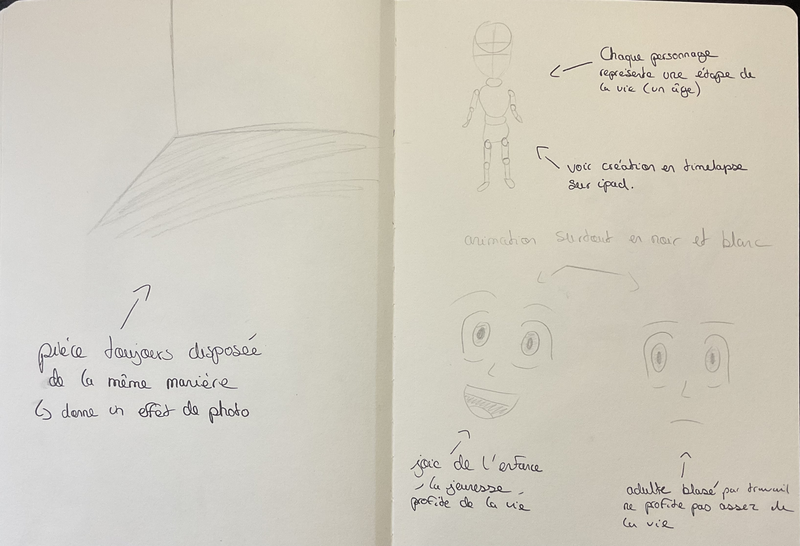 pièce toujours disposée
de la même manière
↳ donne un effet de photo
Chaque personnage
représente une étape de
la vie (un âge)
voir création en timelapse
sur ipad.
animation surtout en noir et blanc
joie de l'enfance
la jeunesse
profite de la vie
adulte blasé par travail
ne profite pas assez de
la vie